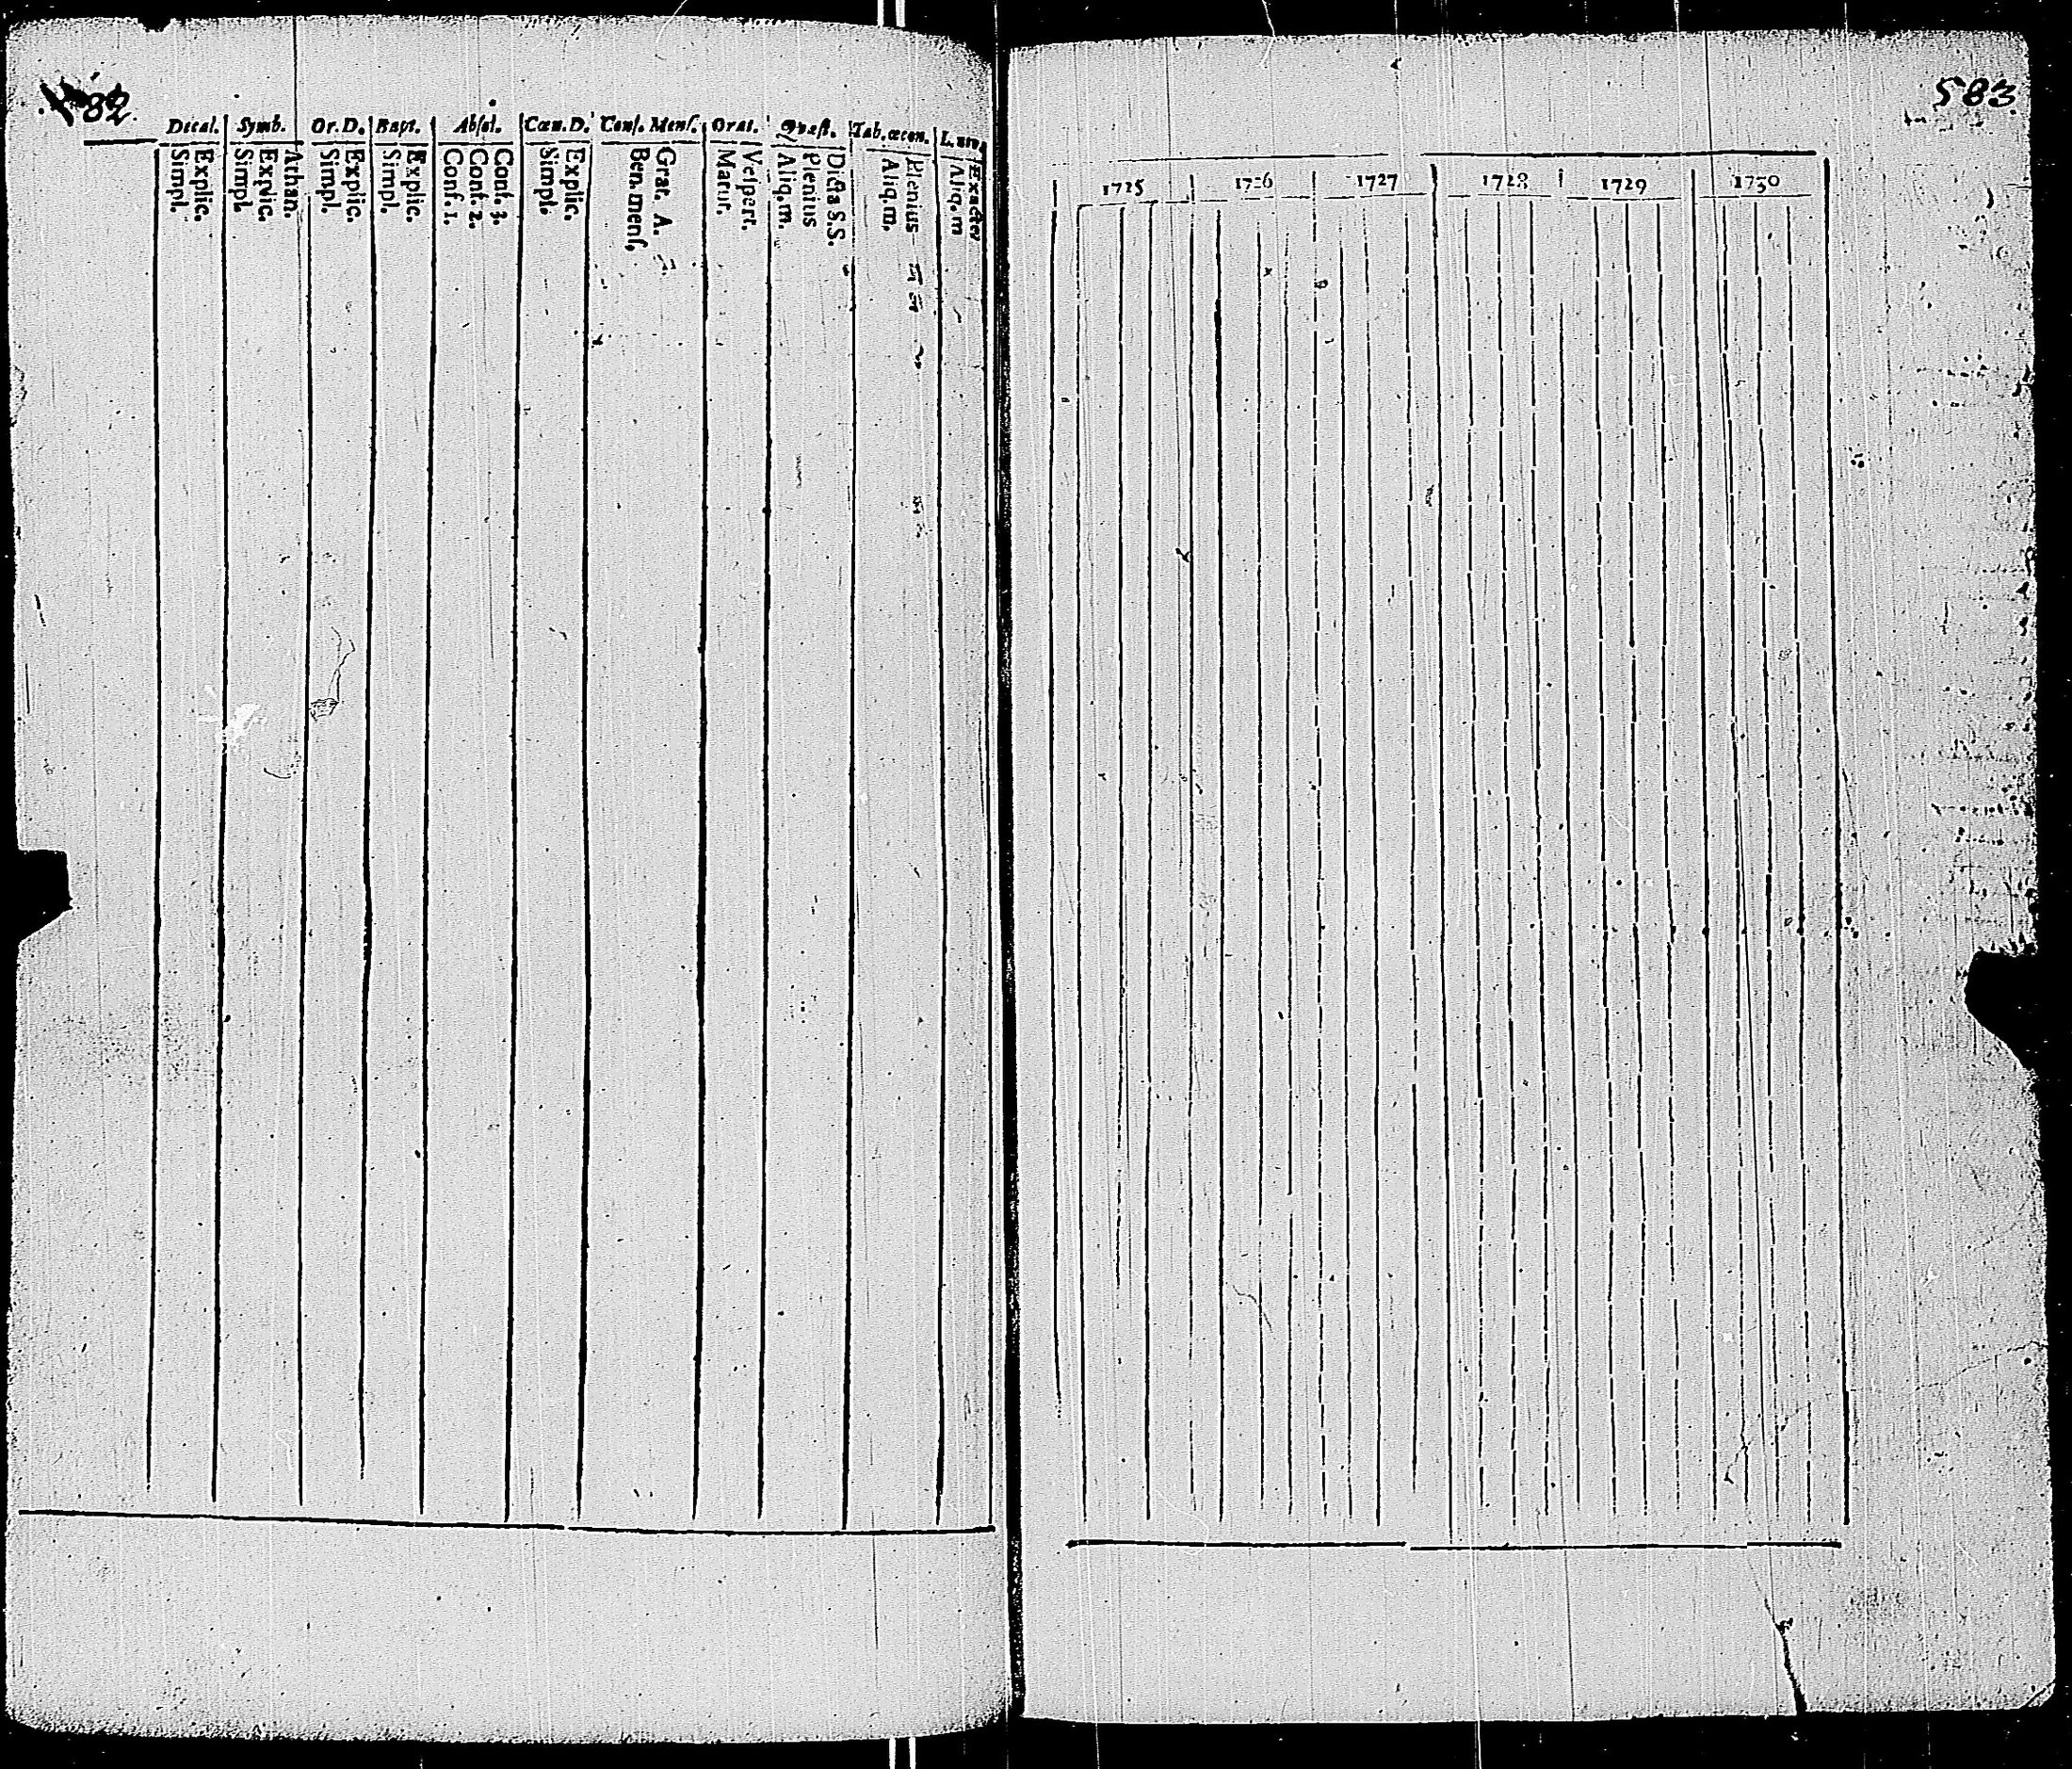 582.
583.
Decal. Symb. Or. D. Bapt. Absol. Cœn. D. Conf. Menſ. Orat. Quæſt. Tab. œcon.
Simpl. Explic. Simpl. Explic. Athan. Simpl. Explic. Simpl. Explic. Conf. 1. Conf. 2. Conf. 3. Simpl. Explic. Ben. menſ. Grat. A. Matut. Veſpert. Aliq. m. Plenius Dicta S.S. Aliq. m. Plenius Aliq. m Exacter
1725 1726 1727 1728 1729 1730